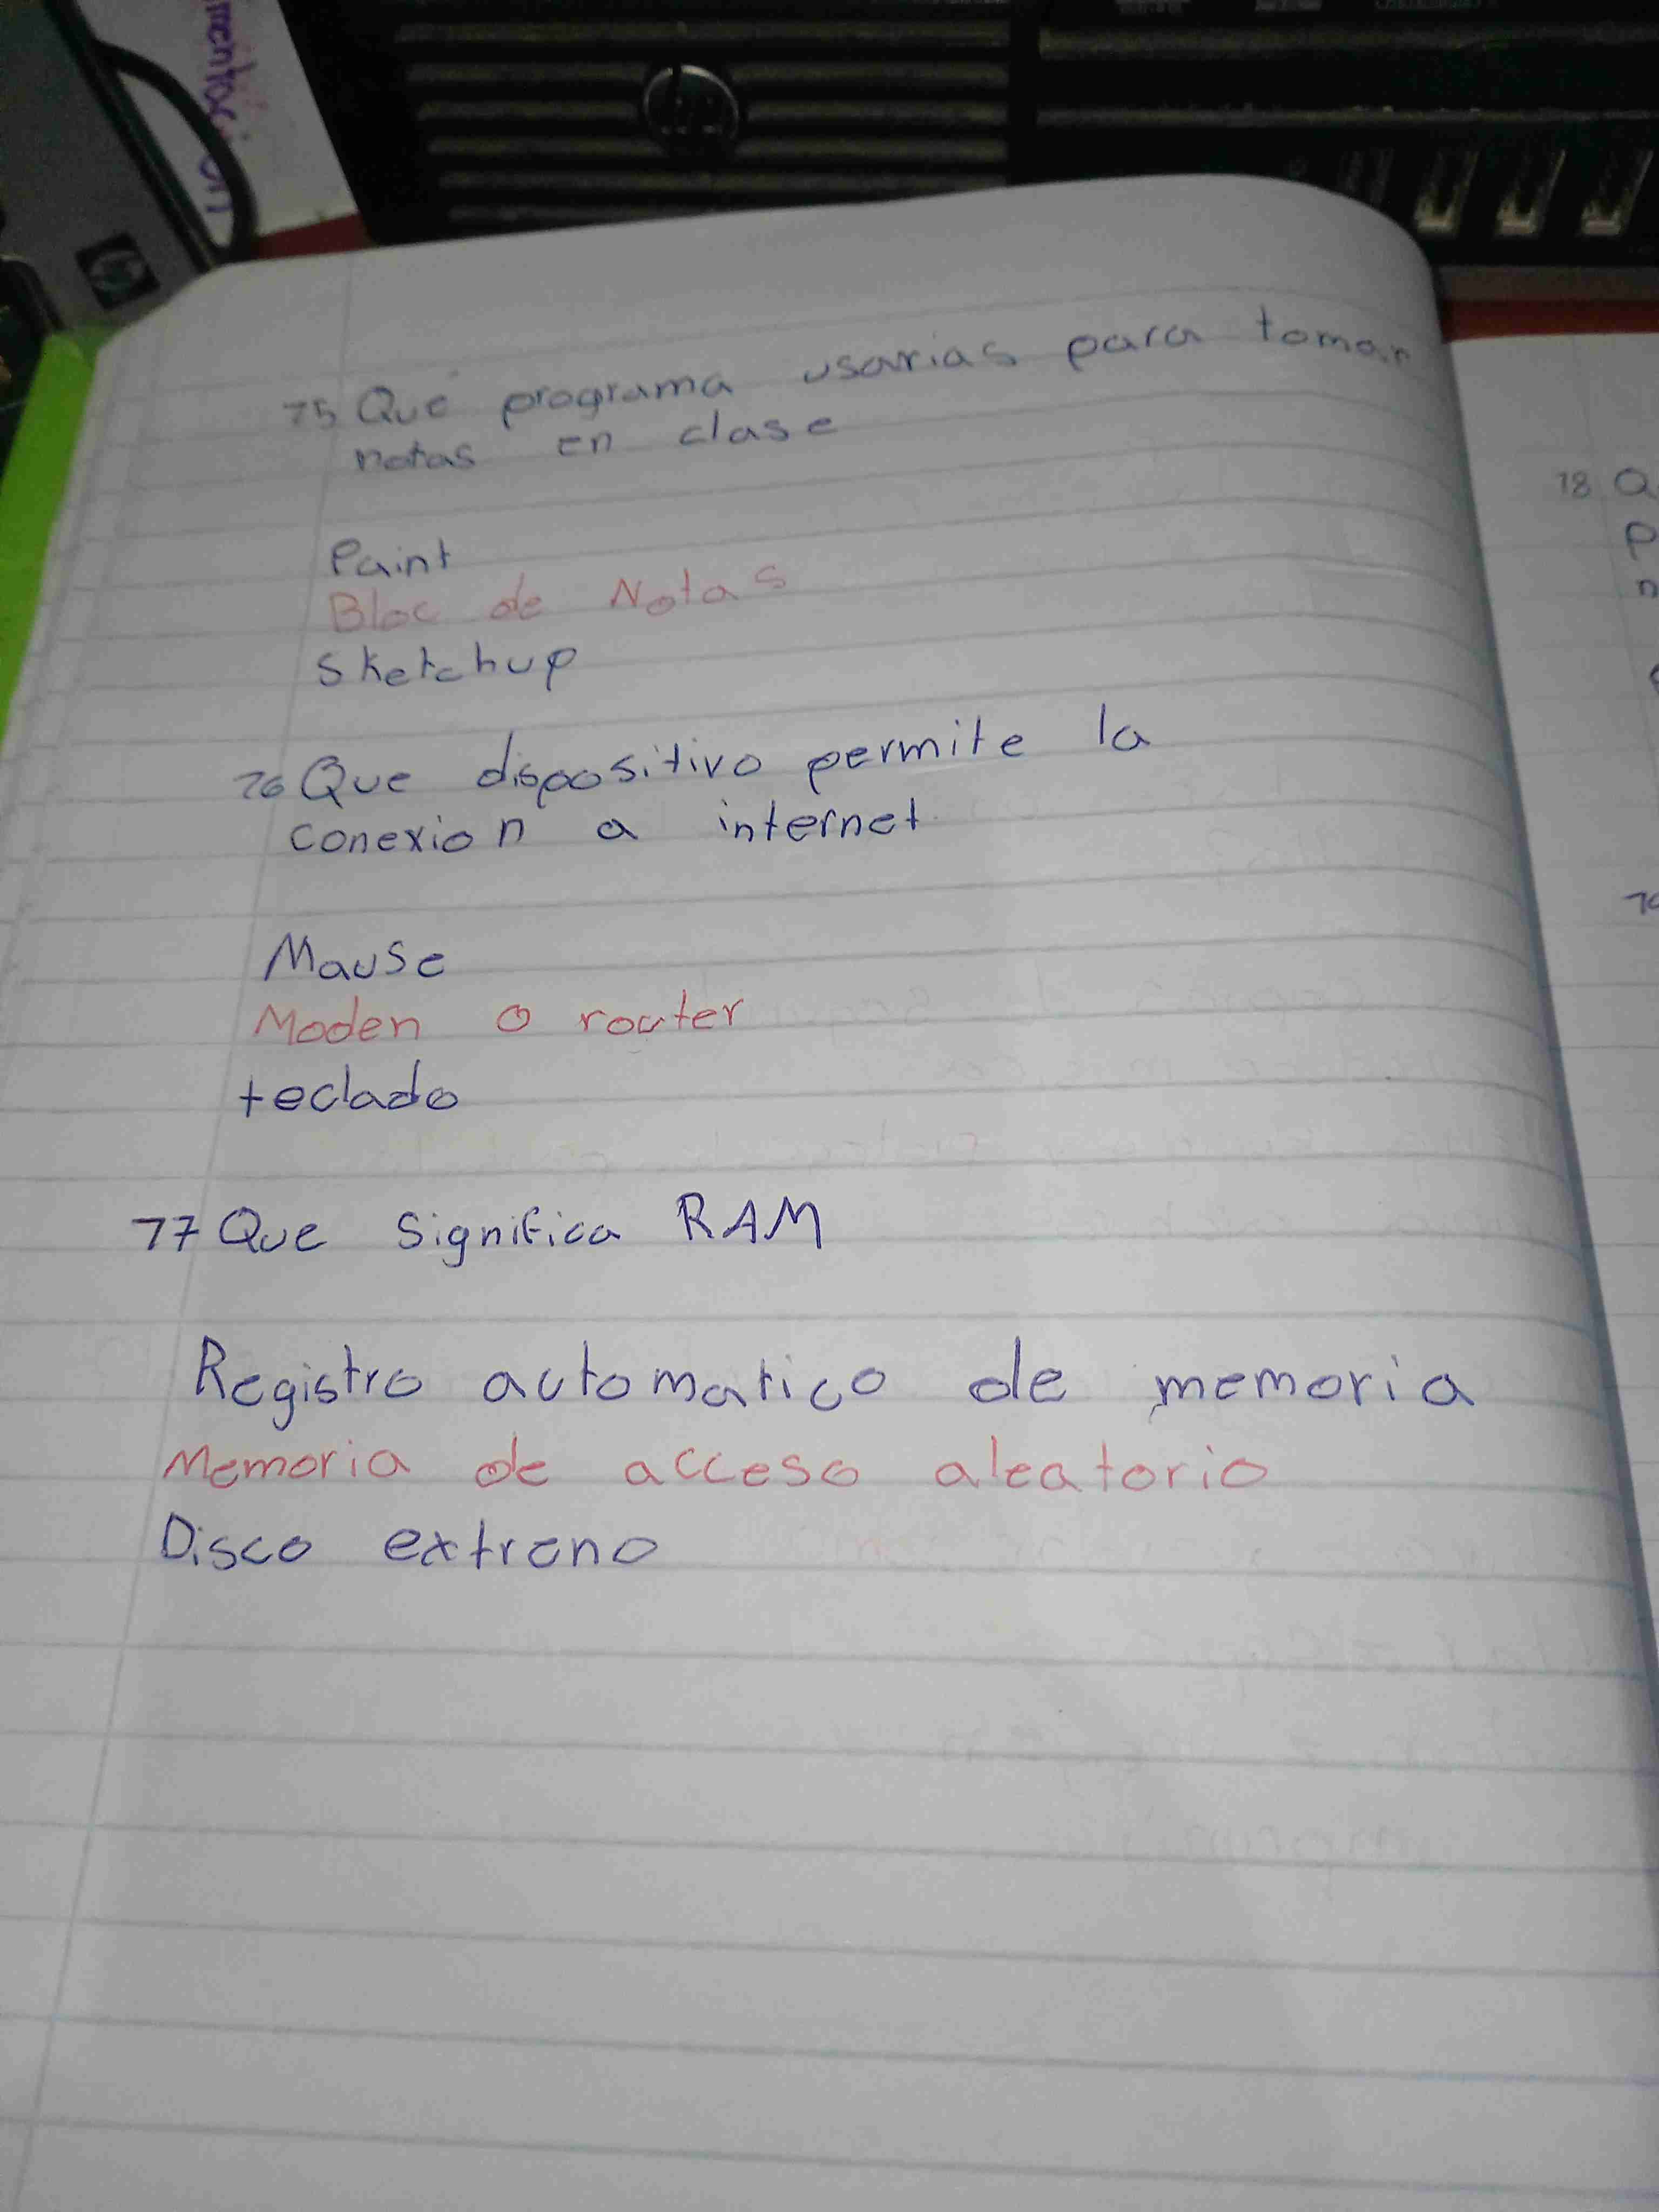 mentación
75 Que programa usarias para tomar
notas en clase
Paint
Bloc de Notas
Sketchup
76 Que dispositivo permite la
conexion a internet
Mause
Moden o router
teclado
77 Que Significa RAM
Registro automatico de memoria
Memoria de acceso aleatorio
Disco extreno
18 Q
P
n